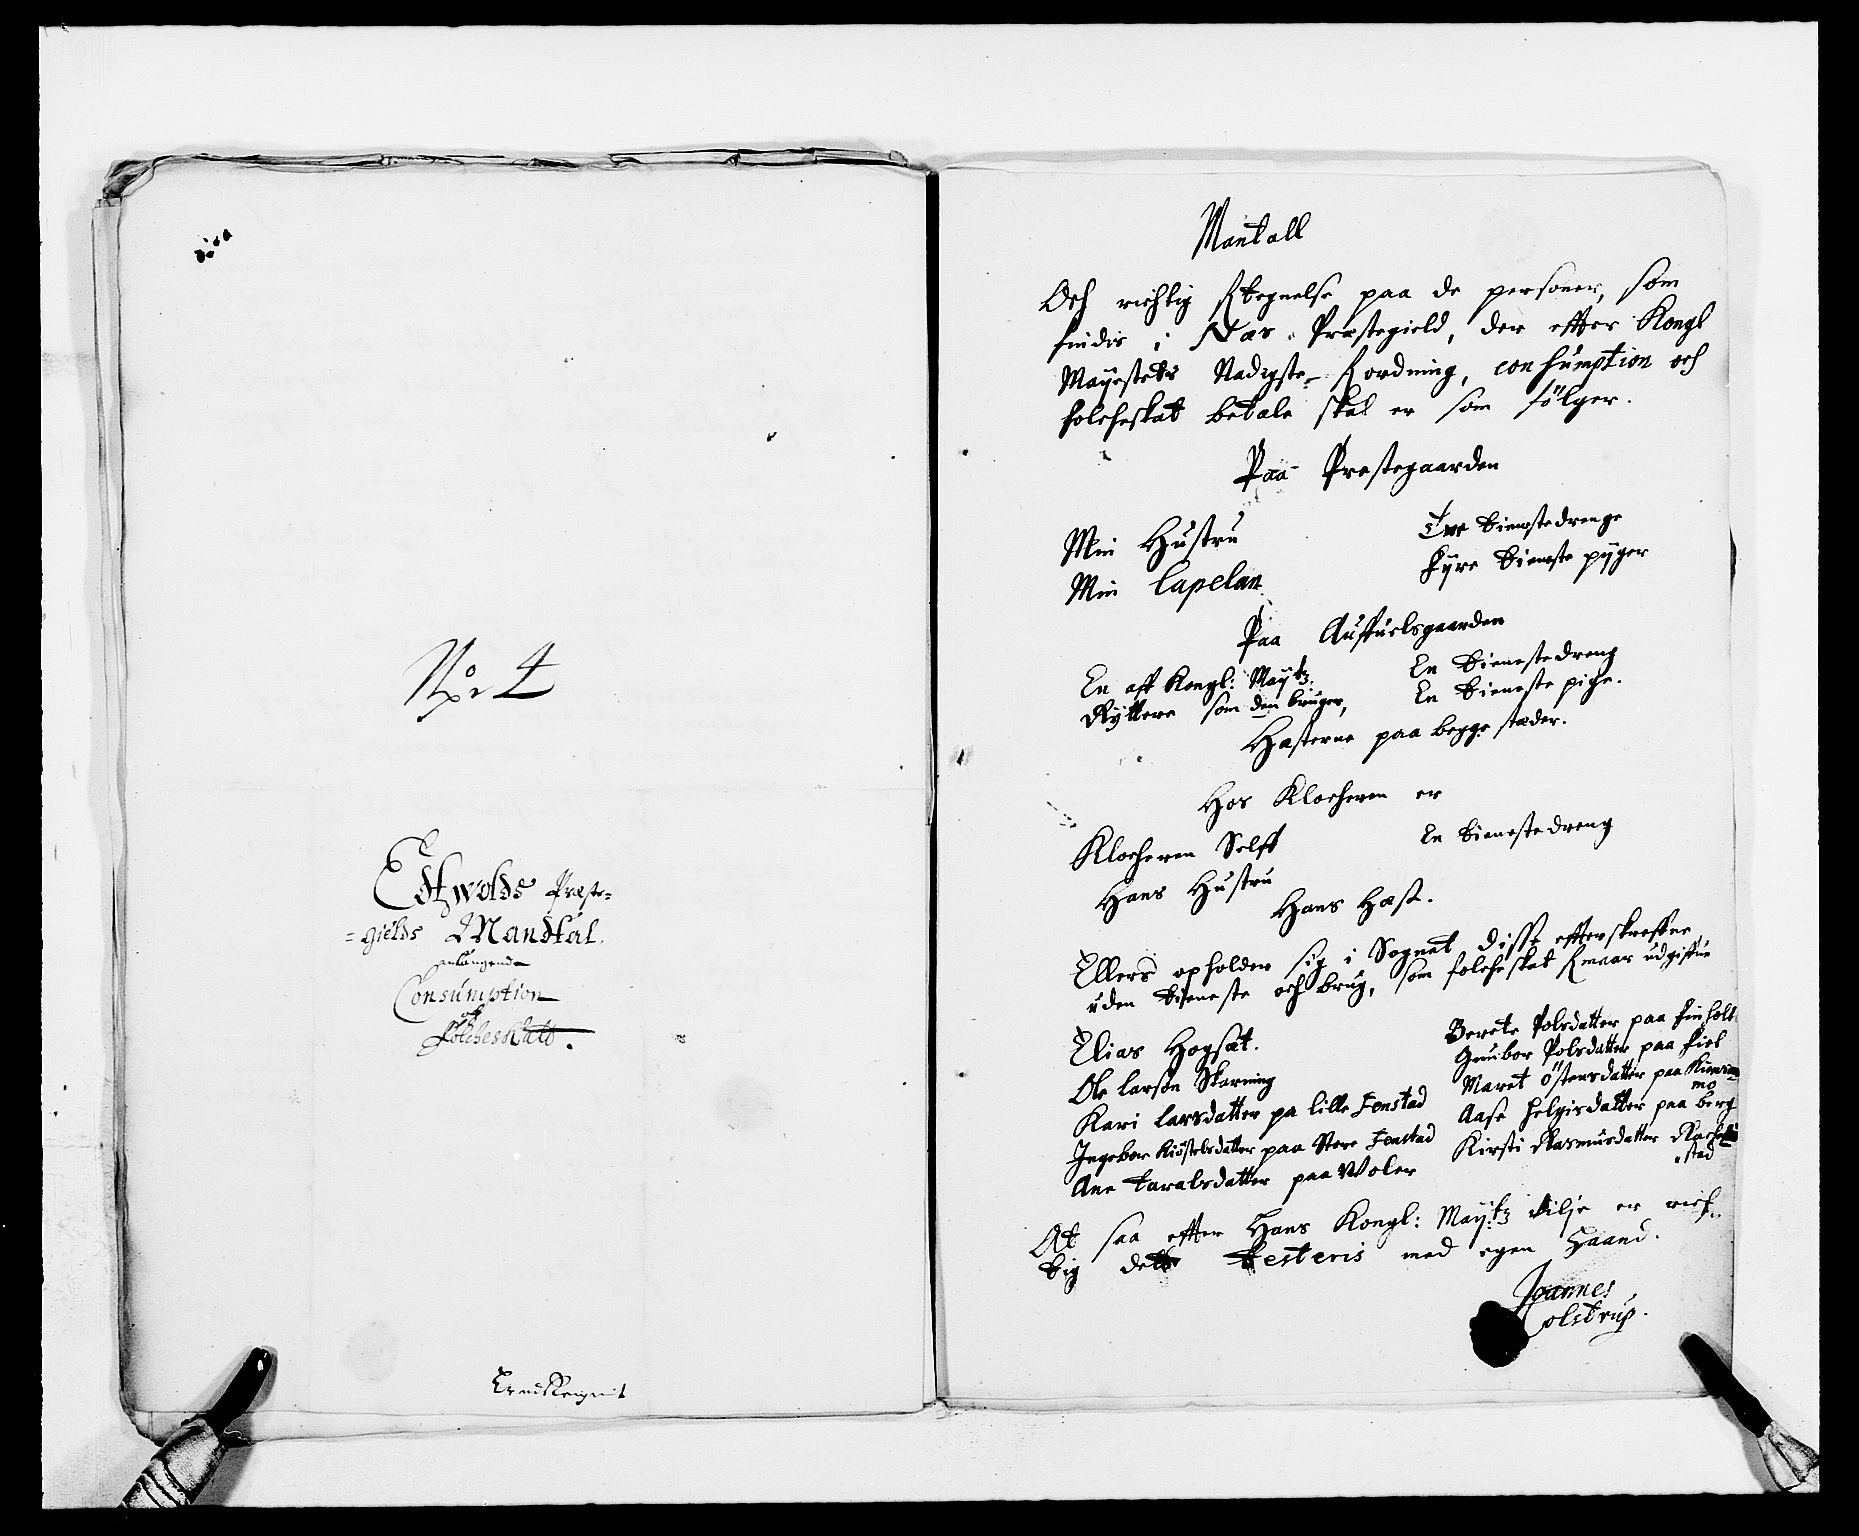 No. 4
Edswolds Præste-
-gields Mandtal
anlangende
Consumption
och
Folcheskatt.
Mantall
Och richtig Ategnelse paa de personer, som
findis i Næs Præstegield, der effter Kongl
Mayestets Nadigste fordning, consumption och
folcheskat betale skal er som fölger.
Paa Præstegaarden
Min Hustru
Min Capelan
Tvе tienestedrenge
Fyre tieneste pyger
Paa Auffuelsgaarden
En aff Kongl: Maytz
Ryttere som den bruger,
En tienestedreng
En tieneste pige.
Hæsterne paa begge stæder.
Hos Klocheren er
Klocheren Selff
Hans Hustru
En tienestedreng
Hans Hæst.
Ellers opholder sig i Sognet disse effterskreffne
uden tieneste och brug, som folcheskat formaar udgiffue
Elias Hogsæt.
Ole Larsøn Skarning
Kari Larsdatter pa lille Fenstad
Ingebor Kiöstelsdatter paa Store Fenstad
Ane Taralsdatter paa Woler
Berete Polsdatter paa Finholt
Gunbor Polsdatter paa Fiel
Maret Östensdatter paa
mo
Aase Helgisdatter paa berg
Kirsti Rasmusdatter
stad
At saa effter Hans Kongl: Maytz vilje er rich-
tig dette testeris med egen Haand.
Joannes
Colstrup.